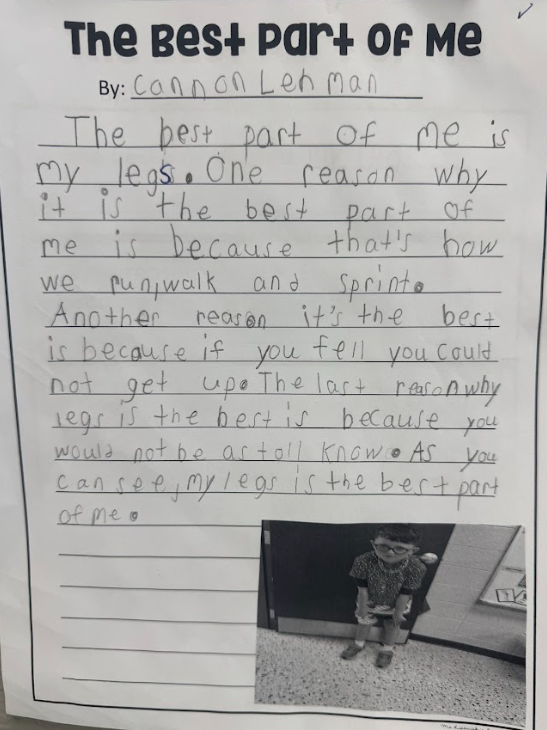 The Best Part Of Me
By: Cannon Lehman
The best part of me is
my legs. One reason why
it is the best part of
me is because that's how
we run, walk and sprint.
Another reason it's the best
is because if you fell you could
not get up. The last reason why
legs is the best is because you
would not be as tall know. As you
can see, my legs is the best part
of me.